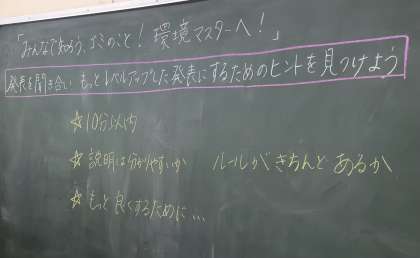 「みんなで知ろう、ごみのこと！環境マスターへ！」
発表を聞き合い もっとレベルアップした発表にするためのヒントを見つけよう
☆10分以内
☆説明は分かりやすいか ルールがきちんとあるか
☆もっと良くするために…